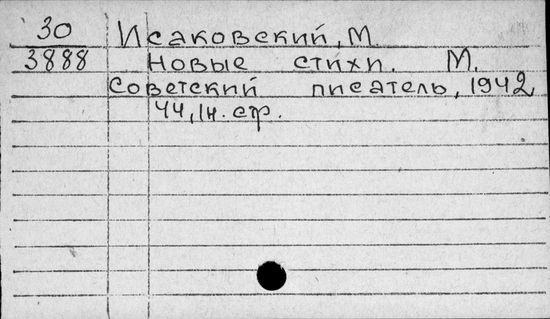 30 Исаковский, М.
3888 Новые стихи. М.
Советский писатель, 1942
44, 1н. стр.